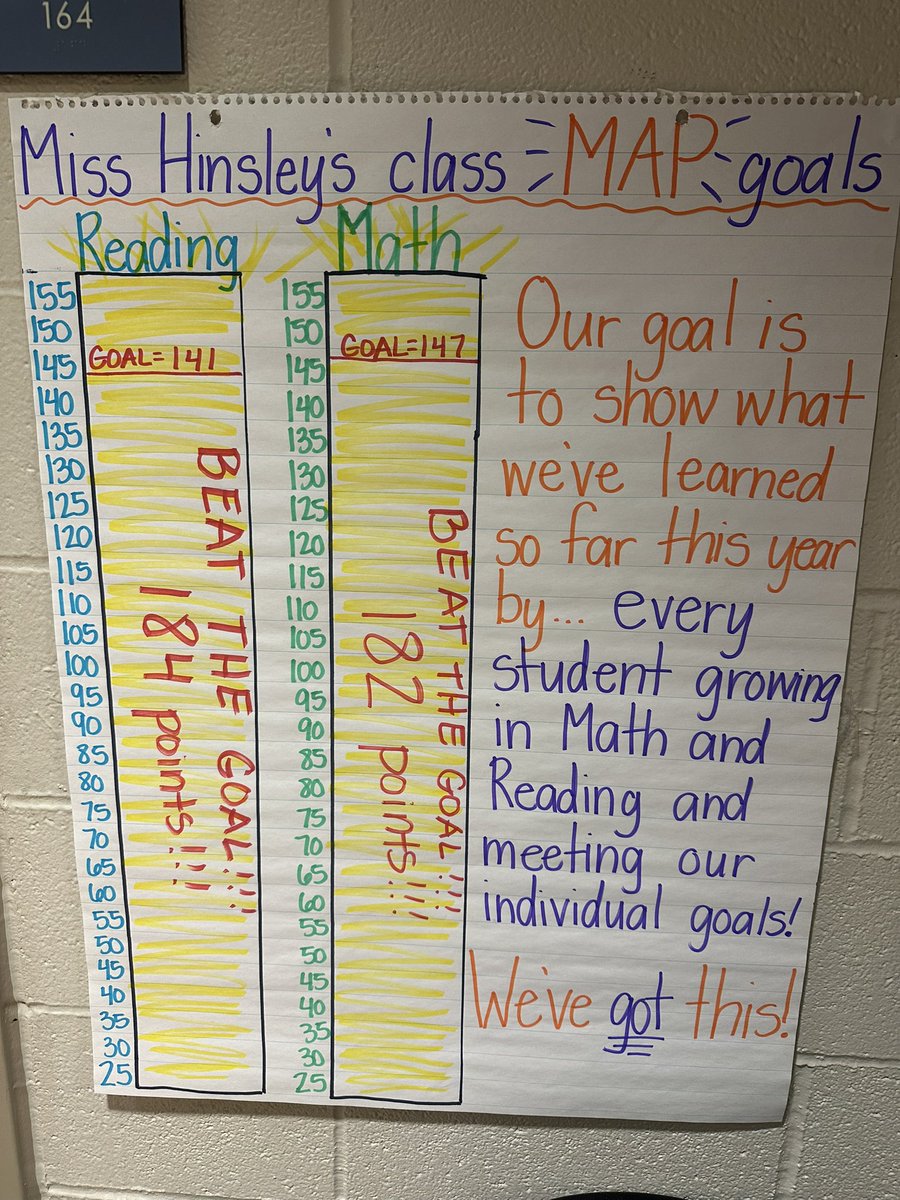 164
Miss Hinsley's class MAP goals
Reading
155
150
145
140
135
130
125
120
115
110
105
100
95
90
85
80
75
70
65
60
55
50
45
40
35
30
25
GOAL=141
BEAT THE GOAL!!!
184 points!!!
Math
155
150
145
140
135
130
125
120
115
110
105
100
95
90
85
80
75
70
65
60
55
50
45
40
35
30
25
GOAL=147
BEAT THE GOAL!!!
182 points!!!
Our goal is
to show what
we've learned
so far this year
by... every
student growing
in Math and
Reading and
meeting our
individual goals!
We've got this!